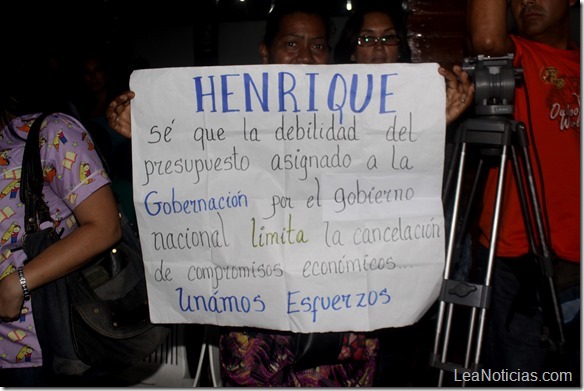 HENRIQUE
sé que la debilidad del
presupuesto asignado a la
Gobernación por el gobierno
nacional limita la cancelación
de compromisos económicos...
Unámos Esfuerzos
LeaNoticias.com